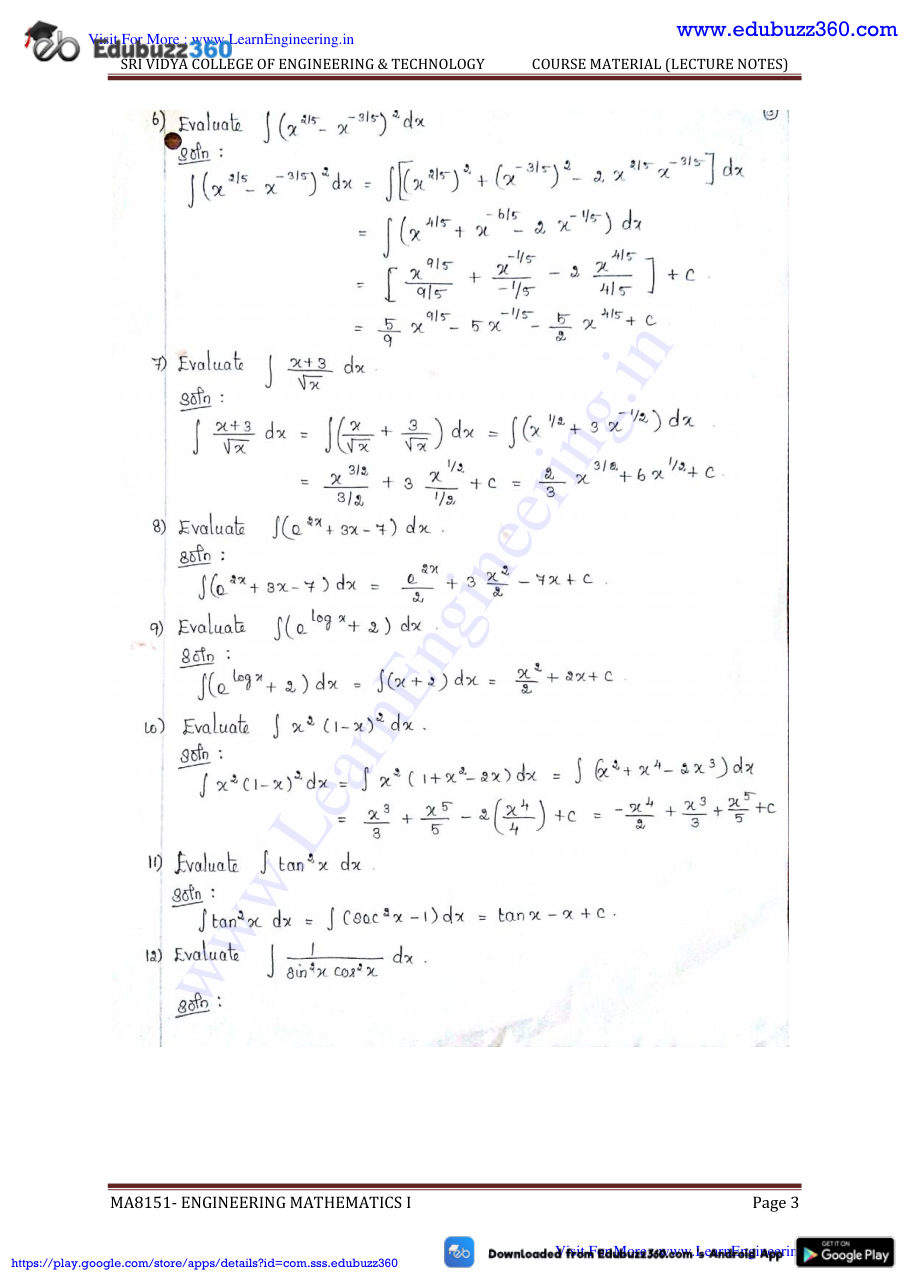 www.edubuzz360.com
Visit For More : www.LearnEngineering.in
Edubuzz360
SRI VIDYA COLLEGE OF ENGINEERING & TECHNOLOGY COURSE MATERIAL (LECTURE NOTES)
(3)
6) Evaluate ∫(x^{2/5} - x^{-3/5})^2 dx
Soln :
∫(x^{2/5} - x^{-3/5})^2 dx = ∫[(x^{2/5})^2 + (x^{-3/5})^2 - 2 x^{2/5} x^{-3/5}] dx
= ∫(x^{4/5} + x^{-6/5} - 2 x^{-1/5}) dx
= [x^{9/5}/(9/5) + x^{-1/5}/(-1/5) - 2 x^{4/5}/(4/5)] + c.
= 5/9 x^{9/5} - 5x^{-1/5} - 5/2 x^{4/5} + c
7) Evaluate ∫ (x+3)/√x dx.
Soln :
∫ (x+3)/√x dx = ∫(x/√x + 3/√x) dx = ∫(x^{1/2} + 3 x^{-1/2}) dx.
= x^{3/2}/(3/2) + 3 x^{1/2}/(1/2) + c = 2/3 x^{3/2} + 6x^{1/2} + c.
8) Evaluate ∫(e^{2x} + 3x - 7) dx.
Soln :
∫(e^{2x} + 3x - 7) dx = e^{2x}/2 + 3 x^2/2 - 7x + c.
9) Evaluate ∫(e^{log x} + 2) dx.
Soln :
∫(e^{log x} + 2) dx = ∫(x+2) dx = x^2/2 + 2x + c.
10) Evaluate ∫ x^2 (1-x)^2 dx.
Soln :
∫ x^2 (1-x)^2 dx = ∫ x^2 (1 + x^2 - 2x) dx = ∫ (x^2 + x^4 - 2x^3) dx
= x^3/3 + x^5/5 - 2(x^4/4) + c = -x^4/2 + x^3/3 + x^5/5 + c
11) Evaluate ∫ tan^2 x dx.
Soln :
∫tan^2 x dx = ∫(sec^2 x - 1) dx = tan x - x + c.
12) Evaluate ∫ 1/(sin^2 x cos^2 x) dx.
Soln :
www.LearnEngineering.in
MA8151- ENGINEERING MATHEMATICS I Page 3
Downloaded from Edubuzz360.com's Android App
Visit For More : www.LearnEngineerin
GET IT ON
Google Play
https://play.google.com/store/apps/details?id=com.sss.edubuzz360